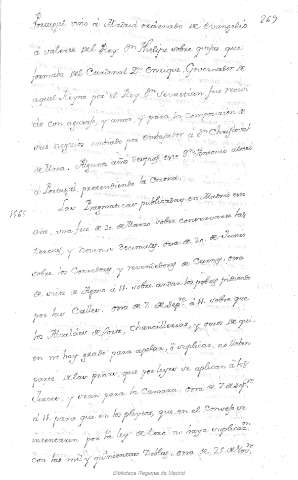 269
Portugal vino à Madrid ordenado de evangelio
à valerse del Rey Dn Phelipe sobre quejas que
formaba del Cardenal Dn Enrique, Governador de
aquel Reyno por el Rey Dn Sevastian, fue recivi
do con agasajo, y amor y para la composicion de
sus embio por embajador à Dn Christoval
de Mora. Algunos años despues este Dn Antonio
à Portugal, pretendiendo la Corona.
1565 Las Pragmaticas publicadas en Madrid este
año, una fue de 20 de Marzo sobre
tercias, y decimales, otra de 20 de Junio
sobre los Corredores, y revendedores de Carnes, otra
de seis de Agosto à 11. sobre los pobres pidiendo
por las Calles. otra de 7. de Sepre. à 11. sobre que
los Alcaldes de Corte, Chancillerias, y otros de qui-
en no hay grado para apelar, ò suplicar, no lleben
parte de las penas, que por leyes se aplican à los
Jueces, y sean para la Camara. otra de 7. de Sepre.
à 11. para que en los pleytos, que en el Consejo se
intentaren por la ley de Toro no haya suplicazn.
con las mil y quinientas doblas, otra de 25 de Nove.
Biblioteca Regional de Madrid